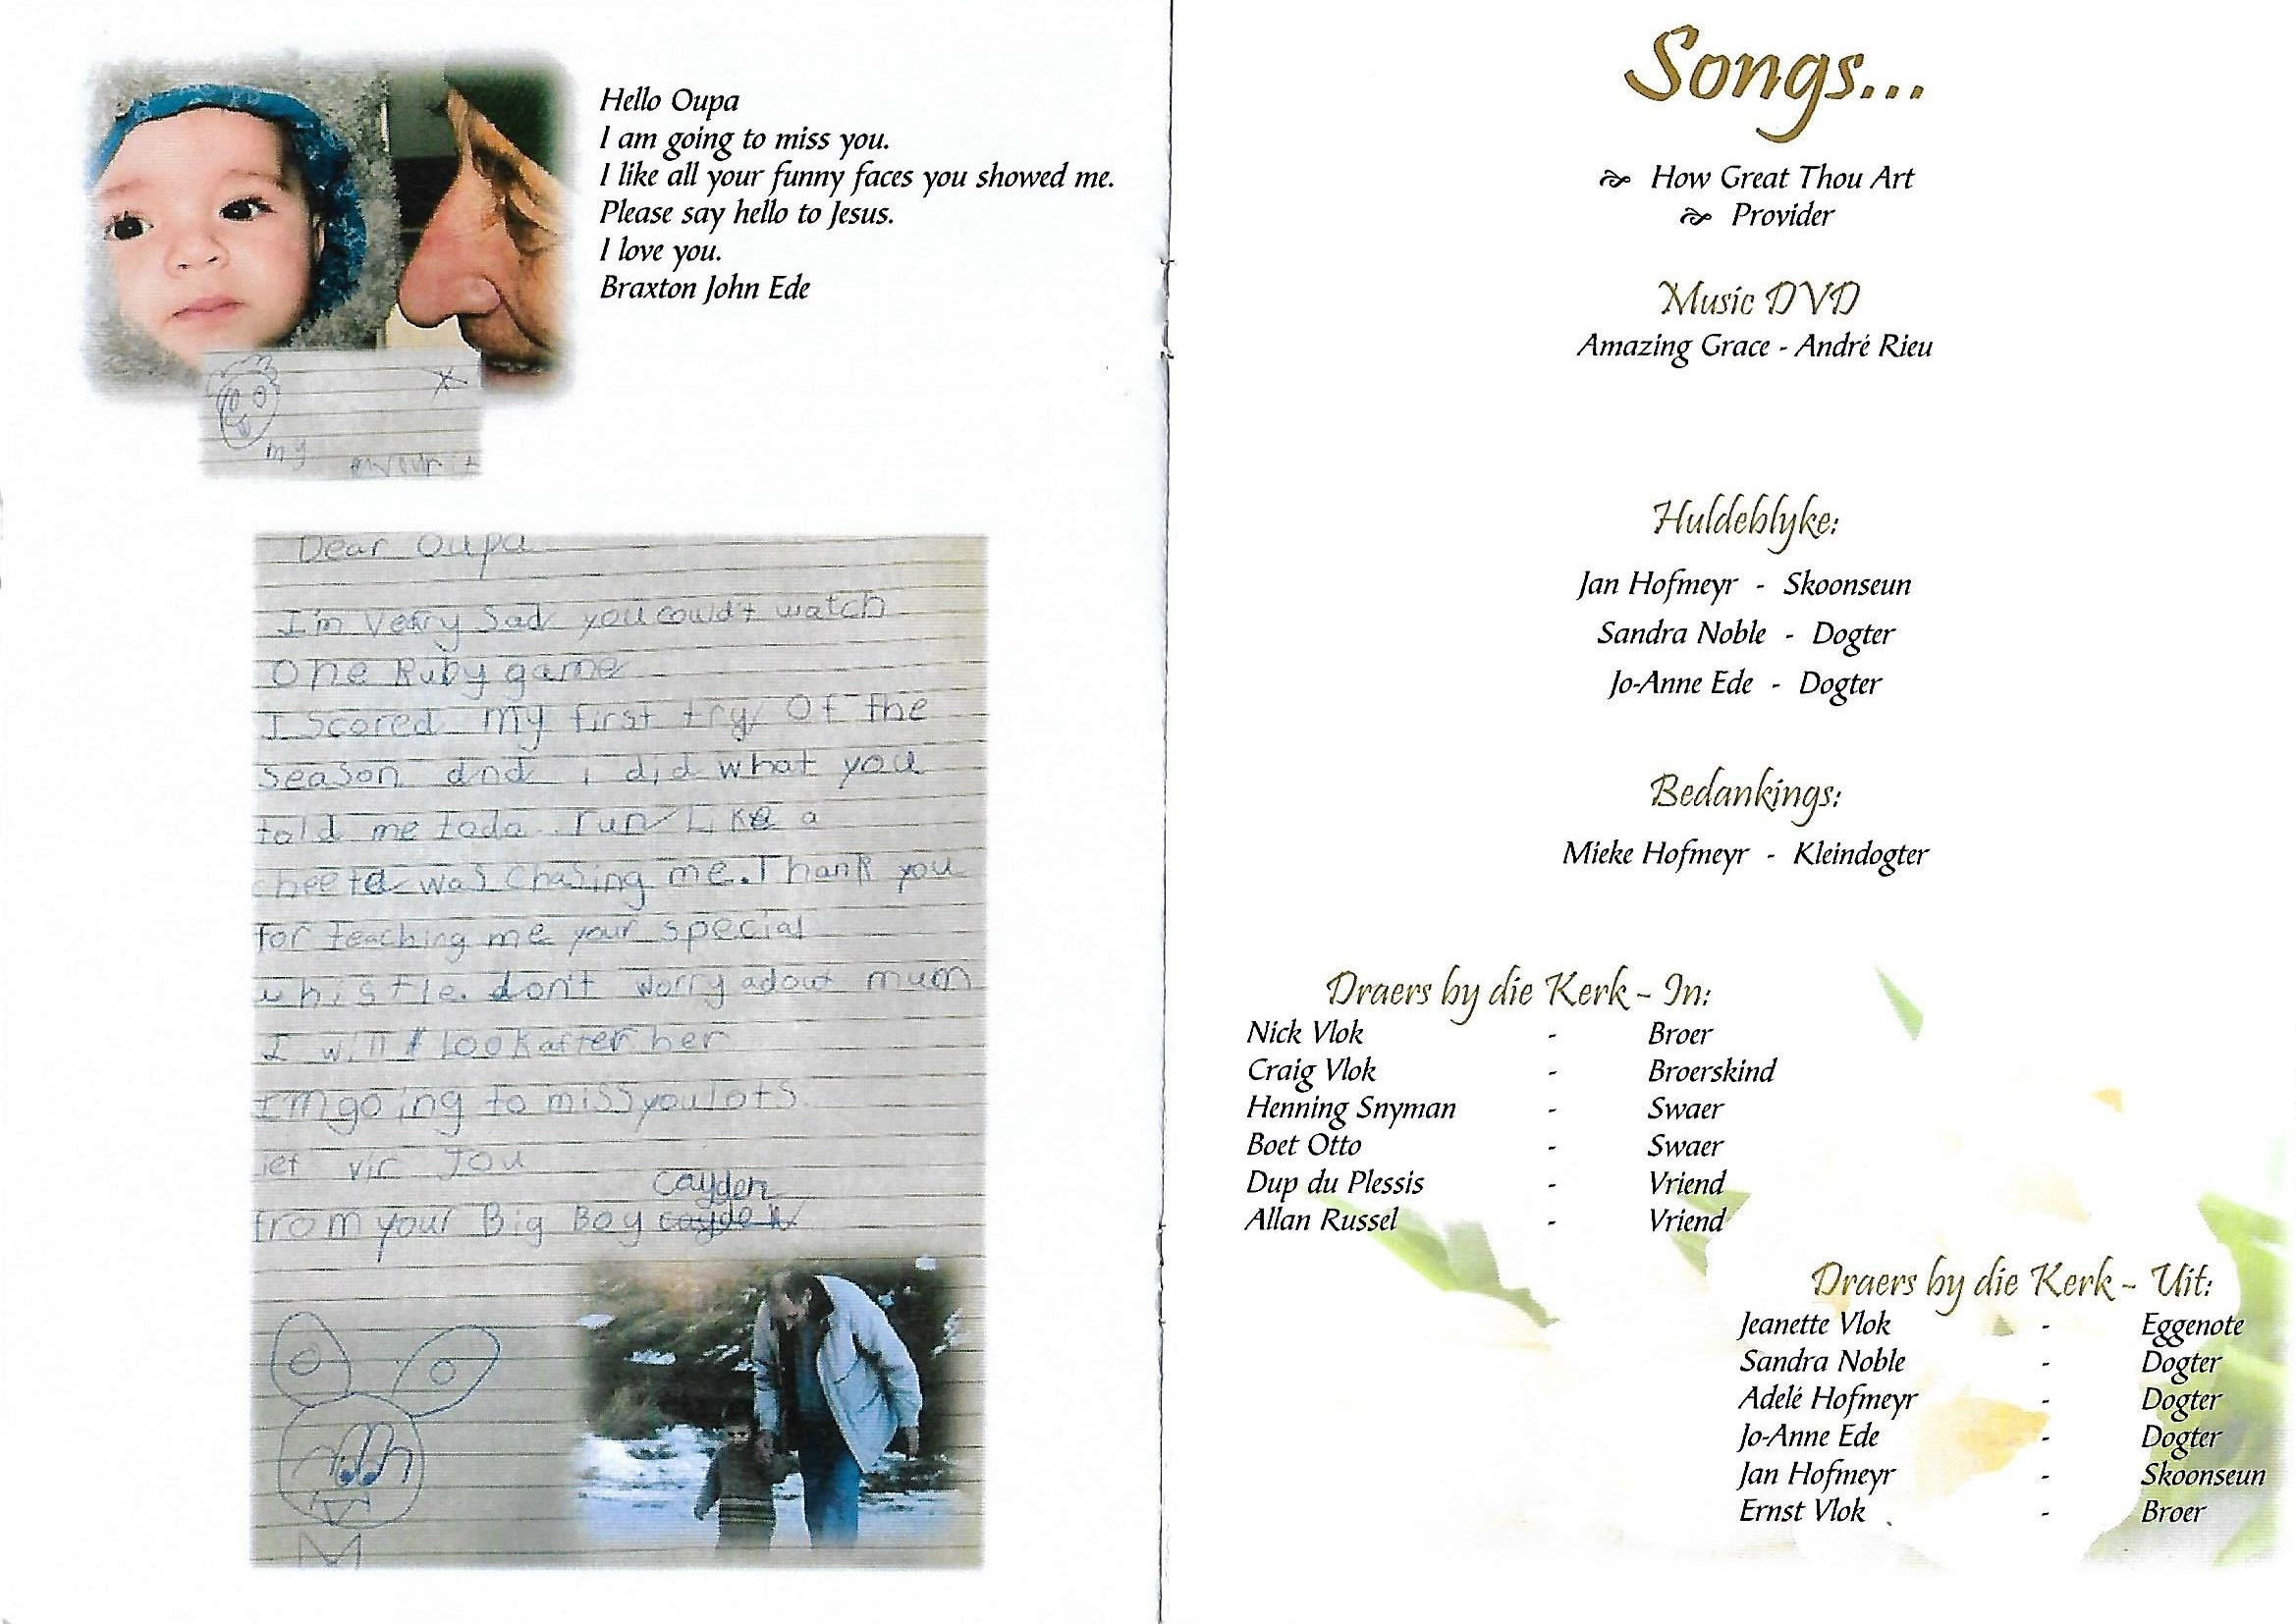 Hello Oupa
I am going to miss you.
I like all your funny faces you showed me.
Please say hello to Jesus.
I love you.
Braxton John Ede
my
Dear Oupa
I'm veary sad you could't watch
One Ruby game
I scored my first try of the
season and i did what you
told me toda run Like a
cheeta was chasing me. Thank you
for teaching me your special
whistle. don't worry adout mum
I will look after her
I'm going to miss you lots
lief vir Jou
Cayden
from your Big Boy cayden
Songs...
How Great Thou Art
Provider
Music DVD
Amazing Grace - André Rieu
Huldeblyke:
Jan Hofmeyr - Skoonseun
Sandra Noble - Dogter
Jo-Anne Ede - Dogter
Bedankings:
Mieke Hofmeyr - Kleindogter
Draers by die Kerk - In:
Nick Vlok - Broer
Craig Vlok - Broerskind
Henning Snyman - Swaer
Boet Otto - Swaer
Dup du Plessis - Vriend
Allan Russel - Vriend
Draers by die Kerk - Uit:
Jeanette Vlok - Eggenote
Sandra Noble - Dogter
Adelé Hofmeyr - Dogter
Jo-Anne Ede - Dogter
Jan Hofmeyr - Skoonseun
Ernst Vlok - Broer